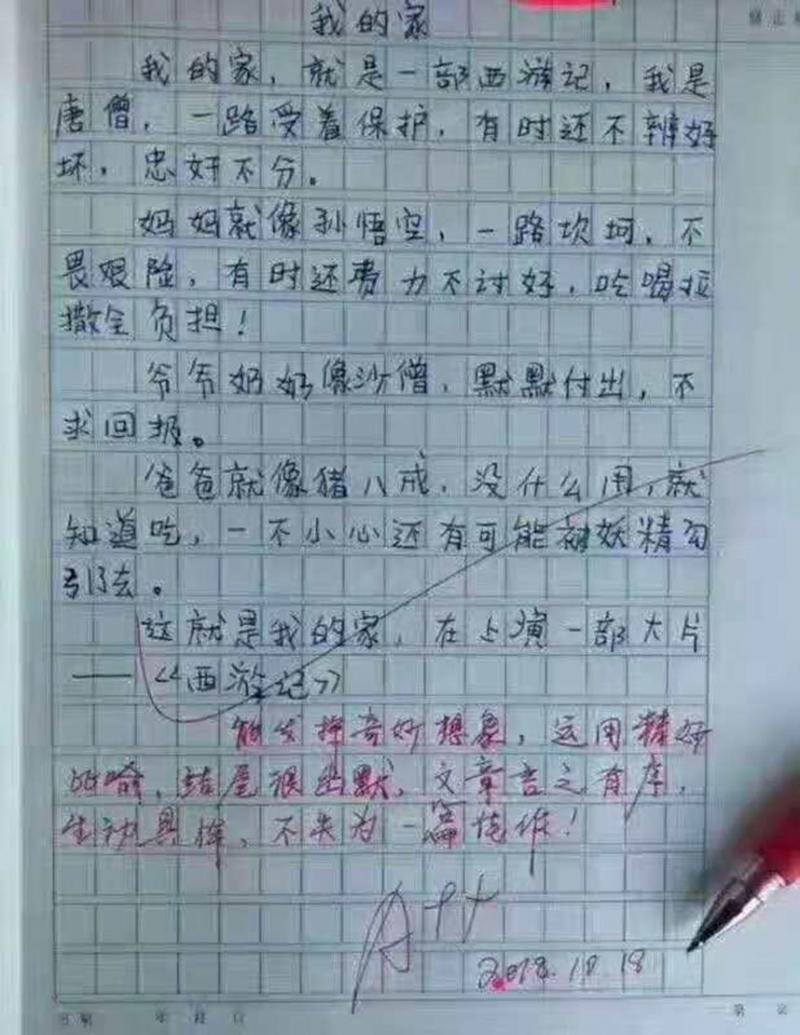 我的家
我的家，就是一部西游记，我是
唐僧，一路受着保护，有时还不辨好
坏，忠奸不分。
妈妈就像孙悟空，一路坎坷，不
畏艰险，有时还费力不讨好，吃喝拉
撒全负担！
爷爷奶奶像沙僧，默默付出，不
求回报。
爸爸就像猪八戒，没什么用，就
知道吃，一不小心还有可能被妖精勾
引了去。
这就是我的家，在上演一部大片
——《西游记》
能发挥奇妙想象，运用精妙
比喻，结尾很幽默，文章言之有序，
生动具体，不失为一篇佳作！
A++
2018.10.18